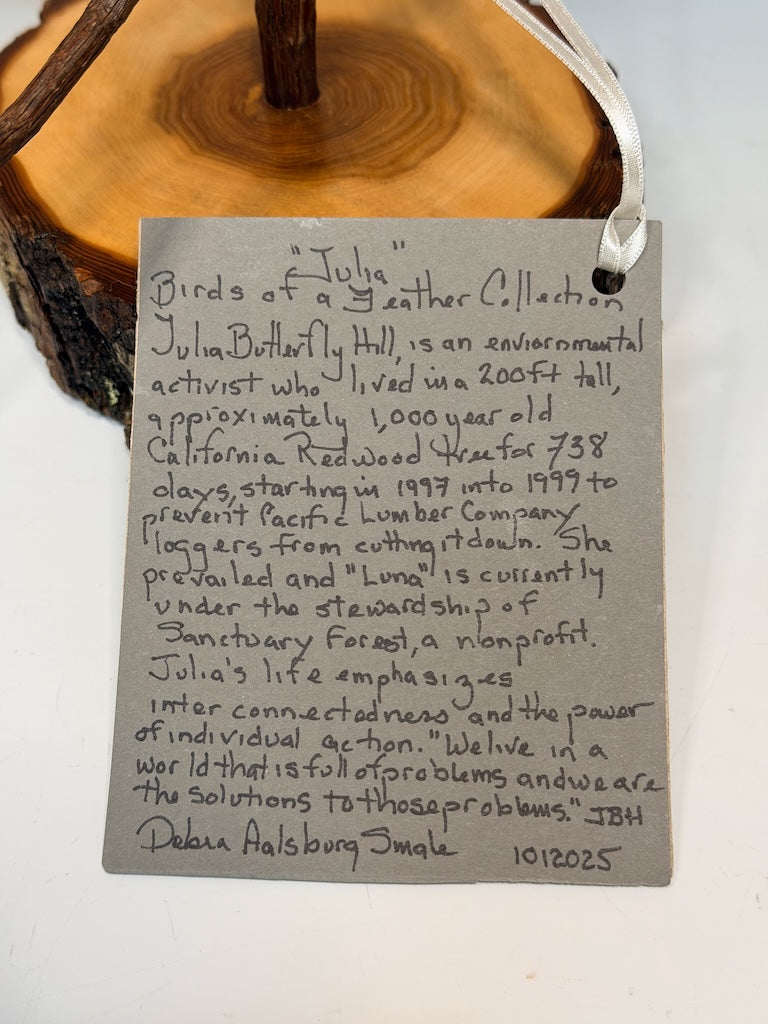 "Julia"
Birds of a Feather Collection
Julia Butterfly Hill, is an enviornmental
activist who lived in a 200ft tall,
approximately 1,000 year old
California Redwood tree for 738
days, starting in 1997 into 1999 to
prevent Pacific Lumber Company
loggers from cutting it down. She
prevailed and "Luna" is currently
under the stewardship of
Sanctuary Forest, a nonprofit.
Julia's life emphasizes
inter connectedness and the power
of individual action. "We live in a
world that is full of problems and we are
the solutions to those problems." JBH
Debra Aalsburg Smale 1012025